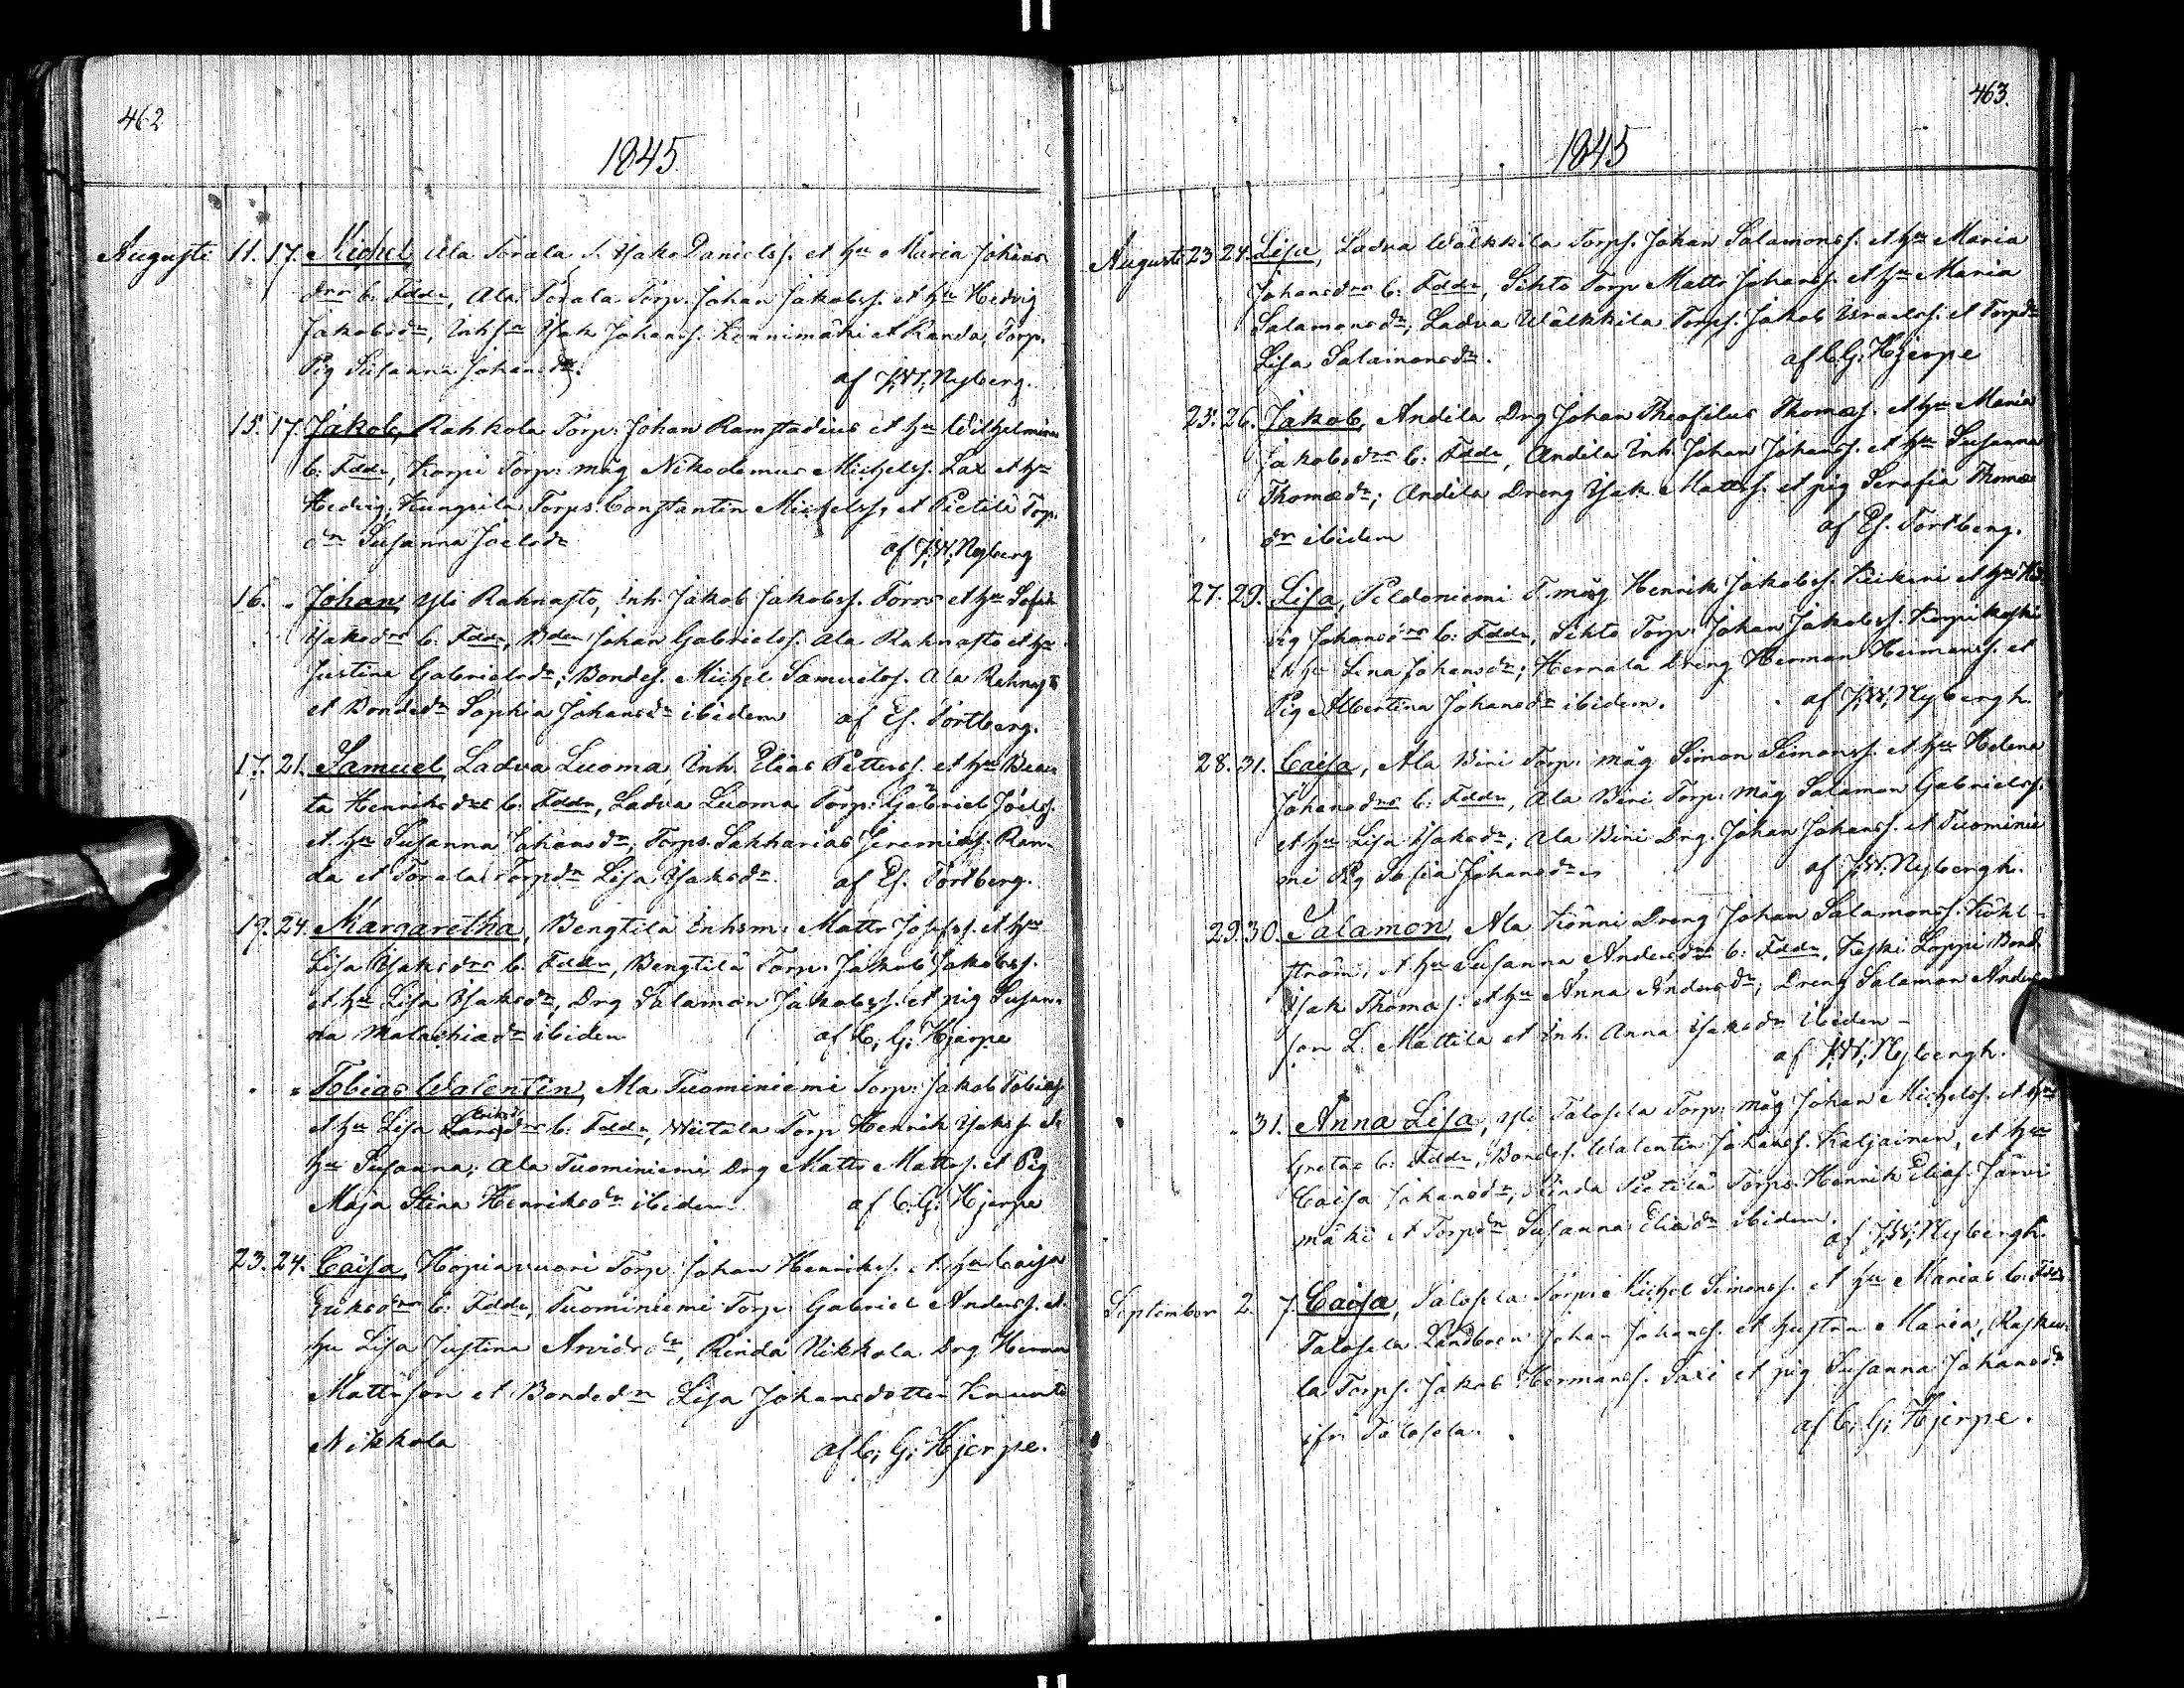 462
1845
Augusti 11. 17. Michel, Ala Torala T. Isak Danielss. et hu Maria Johans
drs b: Fddr, Ala Torala Torp. Johan Jakobss. et hu Hedvig
Jakobsdr, Inhs Isak Johanss. Kennimäki et Randa, Torp.
Pig Susanna Johansdr.
af J.W. Nyberg.
15. 17. Jakob, Rahkola Torp: Johan Ramstadius et hu Wilhelmina
b: Fddr, Korpi Torp: måg Nikodemus Michelss. Lax et hu
Hedvig; Kungila Torps. Constantin Michelss, et Pietilä Torp.
dr Susanna Joelsdr
af J.W. Nyberg
16. " Johan, Yli Rahnasto, Inh. Jakob Jakobss. Torrs et hu Sofia
Isaksdrs b: Fddr, Bden Johan Gabrielss. Ala Rahnasto et hu
Justina Gabrielsdr; Bondes. Michel Samuelss. Ala Rahnasto
et Bondedr Sophia Johansdr ibidem af Es. Törtberg.
17. 21. Samuel, Ladva Luoma Inh. Elias Petterss. et hu Bea-
ta Henriksdrs b: Fddr, Ladva Luoma Torp: Gabriel Joelss
et hu Susanna Johansdr, Torps. Sakharias Jeremiass. Ran-
da et Torala Torpdr Lisa Isaksdr. af Es. Törtberg.
19. 24. Margaretha, Bengtilä Inhsm: Matts Josefss. et hu
Lisa Isaksdrs b. Fddr, Bengtilä Torp: Jakob Jakobss.
et hu Lisa Isaksdr, Drg Salamon Jakobss. et pig Susan-
na Malachiadr ibidem af C. G. Hjerpe
" " Tobias Walentin, Ala Tuominiemi Torp: Jakob Tobiass
et hu Lisa Eriksdrs b: Fddr, Torp Henrik Isakss. et
hu Susanna; Ala Tuominiemi Drg Matts Mattss. et Pig
Maja Stina Henriksdr ibidem af C. G. Hjerpe
23. 24. Caisa, Hopiavuori Torp Johan Henrikss. et hu Caisa
Eriksdrs b: Fddr, Tuominiemi Torp: Gabriel Anderss. et
hu Lisa Justina Arvidsdr, Rinda Nikkola Drg Herman
Mattsson et Bondedr Lisa Johansdotter
Nikkola
af C. G. Hjerpe.
463.
1845
Augusti 23 24. Lisa, Ladva Wälkkilä Torps. Johan Salamonss. et hu Maria
Johansdrs b: Fddr, Sikto Torp Matts Johanss. et hu Maria
Salamonsdr; Ladva Wälkkilä Torps. Jakob Israelss. et Torpdr
Lisa Salamonsdr. af C.G. Hjerpe
25. 26. Jakob, Andila Drg Johan Theofilus Thomæs. et hu Maria
Jakobsdrs b: Fddr, Andila Inh. Johan Johanss. et hu Susanna
Thomædr; Andila Dreng Isak Mattss. et pig Serafia Thomæ
dr ibidem af Es. Törtberg.
27. 29. Lisa, Peldoniemi T. måg Henrik Jakobss. et hu Hed
vig Johansdrs b: Fddr, Sikto Torp: Johan Jakobss. Korpikoski
et hu Lena Johansdr; Hernala Dreng Herman Hermanss. et
Pig Albertina Johansdr ibidem. af J.W. Nybergh.
28. 31. Caisa, Ala Viri Torp: måg Simon Simonss. et hu Helena
Johansdrs b: Fddr, Ala Viri Torp: Måg Salamon Gabrielss.
et hu Lisa Isaksdr; Ala Viri Drg. Johan Johanss. et Tuominie
mi Pig Sofia Johansdr af J.W. Nybergh.
29. 30. Salamon, Ala Könni Dreng Johan Salamonss. Köhl-
ström, et hu Susanna Andersdrs b: Fddr, Keski Loppi Bond
Isak Thomæs. et hu Anna Andersdr; Dreng Salamon Anders
son L. Mattila et Inh. Anna Isaksdr ibidem -
af J.W. Nybergh.
" 31. Anna Lisa, Yli Talosela Torp: måg Johan Michelss. et hu
Gretas b: Fddr, Bondes. Walentin Johanss. Kaljainen, et hu
Caisa Johansdr; Rinda Pietilä Torps. Henrik Eliass. Järvi
mäki et Torpdr Susanna Eliadr ibidem. af J.W. Nybergh.
September 2. 7. Caisa, Talosela Torp: Michel Simonss. et hu Marias b: Fddr
Talosela Landboen Johan Johanss. et hustrun Maria,
la Torps. Jakob Hermanss. Saxi et pig Susanna Johansdr
ifr. Talosela. af C. G. Hjerpe.